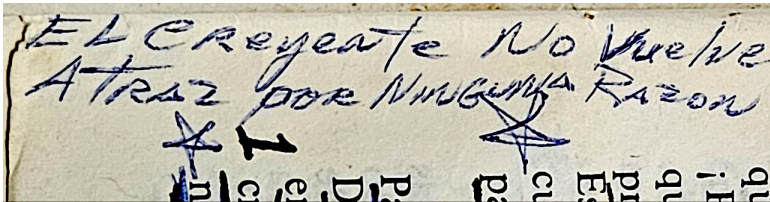 EL Creyente No Vuelve
ATRAZ POR NINGUNA RAZON
1